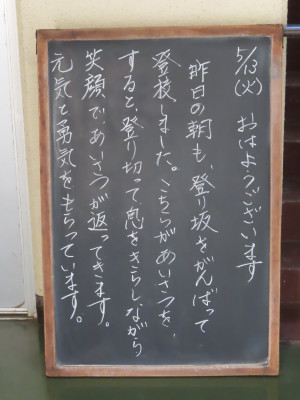 5/13(火) おはようございます
昨日の朝も、登り坂をがんばって
登校しました。こちらがあいさつを、
すると、登り切って息をきらしながら
笑顔で、あいさつが返ってきます。
元気と勇気をもらっています。